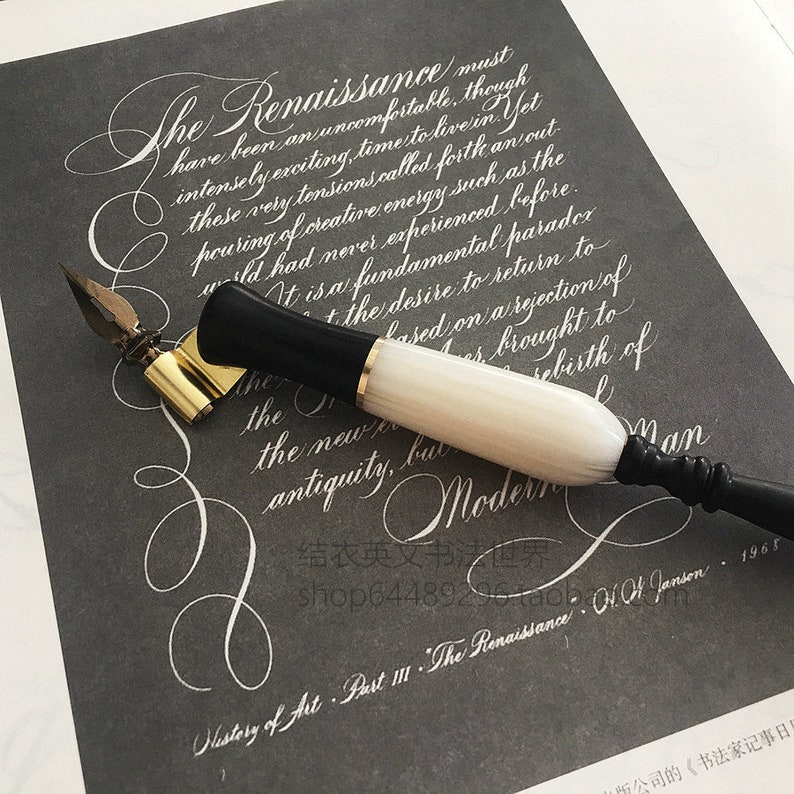 The Renaissance must
have been an uncomfortable, though
intensely exciting, time to live in. Yet
these very tensions called forth an out-
pouring of creative energy such as the
world had never experienced before.
It is a fundamental paradox
the desire to return to
based on a rejection of
the brought to
the new rebirth of
antiquity, but of
Modern Man
结衣英文书法世界
shop64489296.taobao.com
History of Art · Part III · "The Renaissance" · H. W. Janson · 1968
出版公司的《书法家记事日